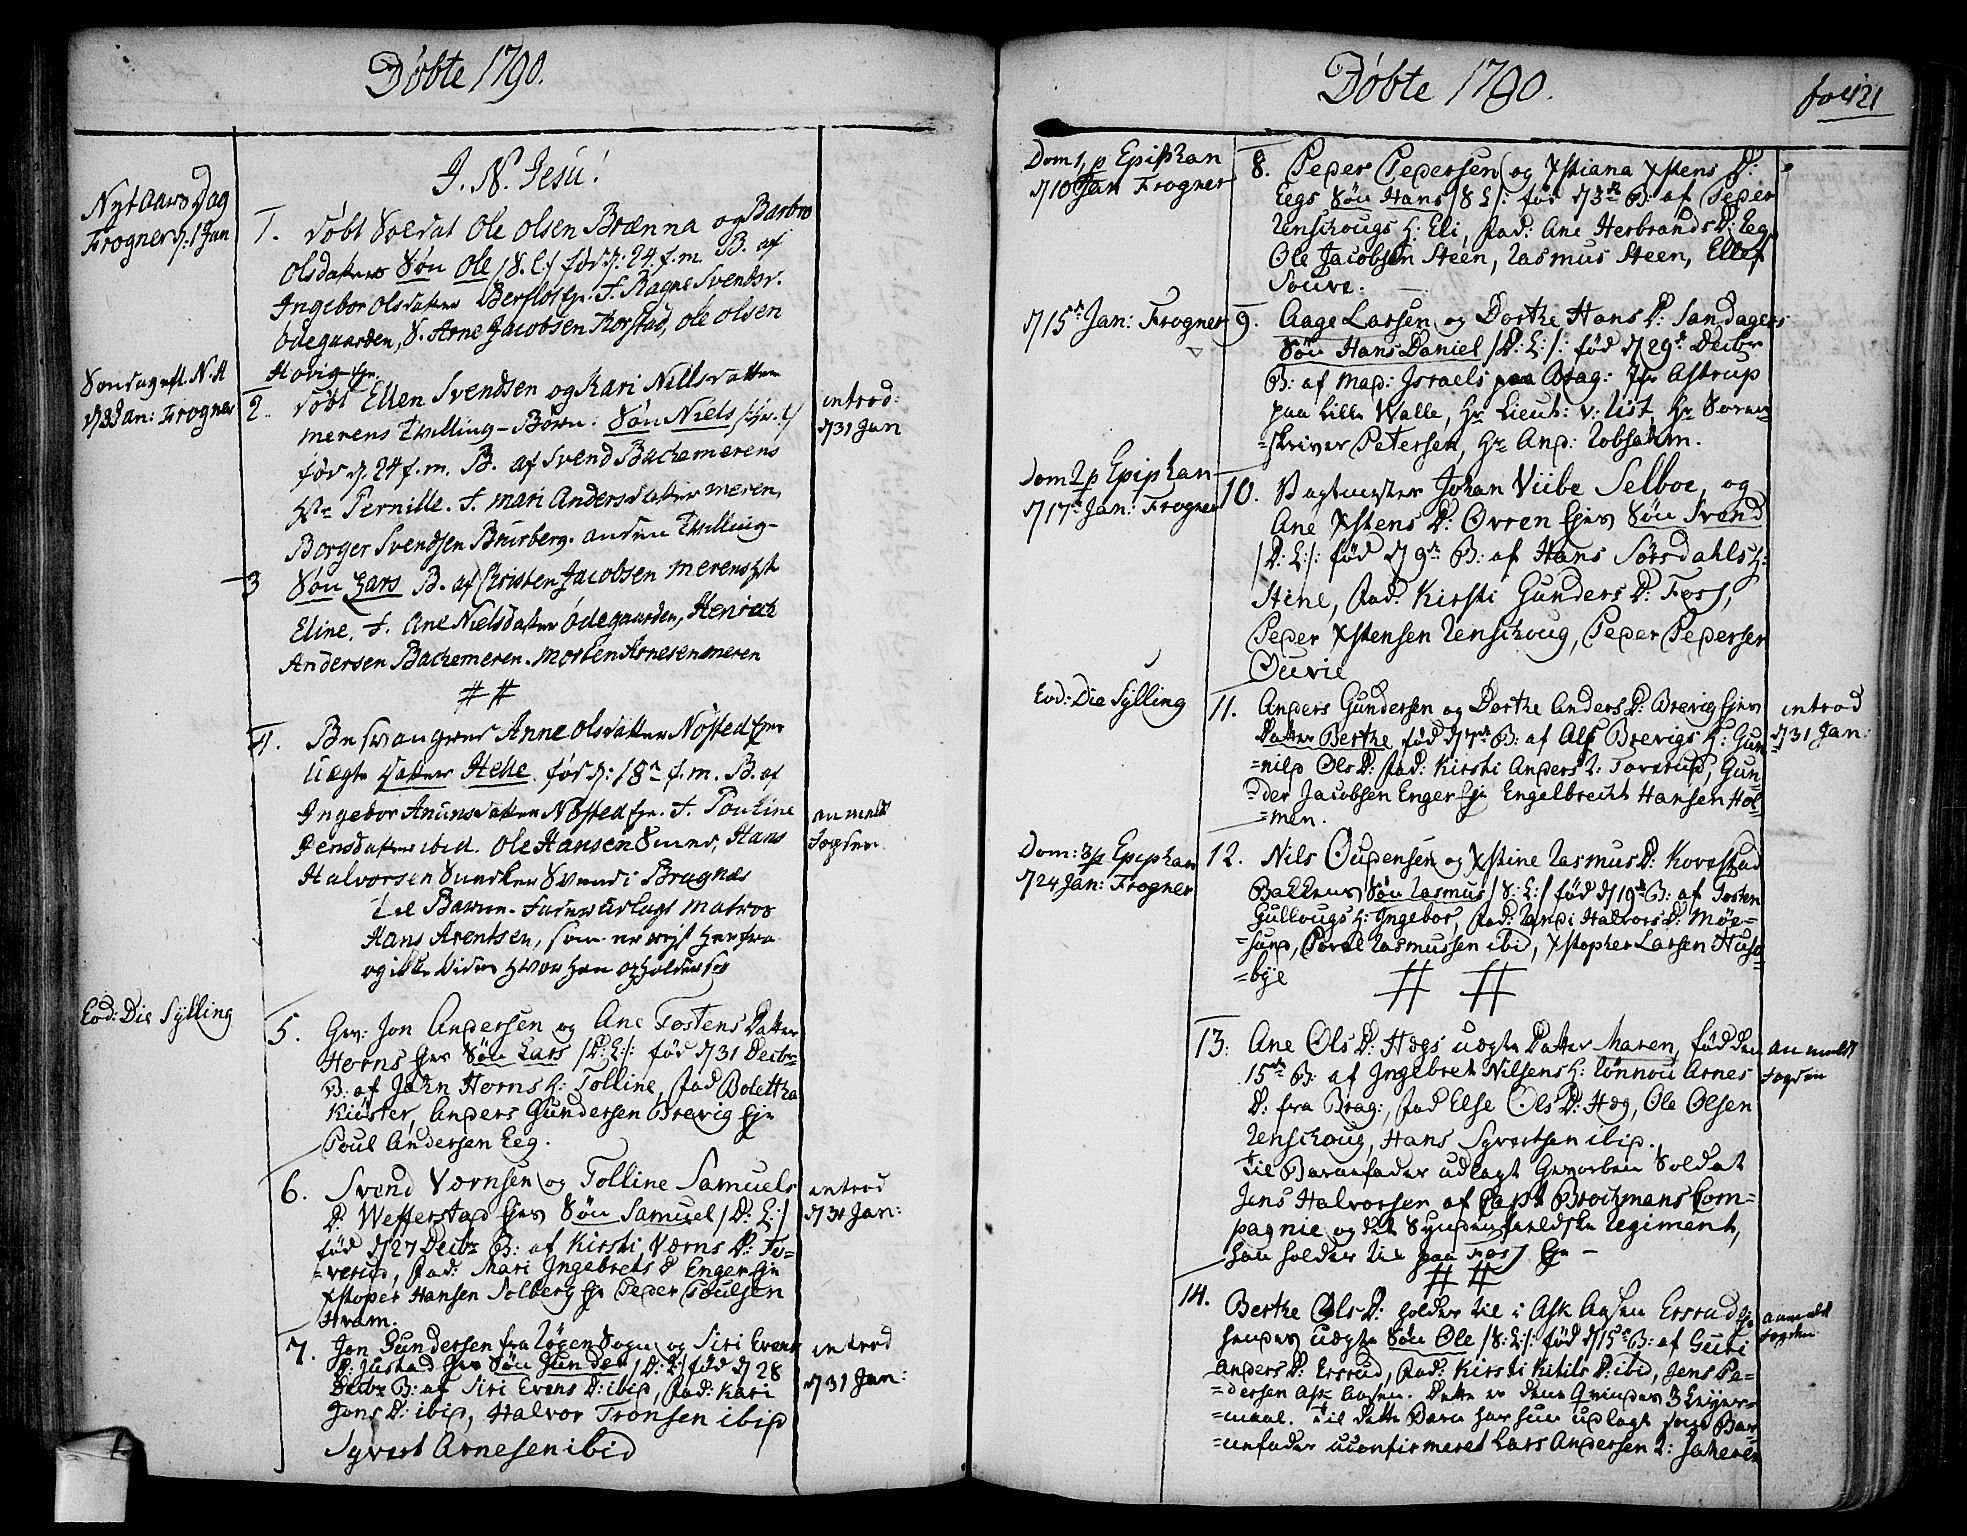 Døbte 1790.
J. N. Jesu!
Nytaars Dag
Frogner d: 1 Jan
1. døbt Soldat Ole Olsen Brænna og Barbro
Olsdatters Søn Ole /S. L:/ fød d: 24 f. m. B. af
Ingebor Olsdatter Berfløt Eje. F. Ragne Svendsd.
Ødegaarden, S. Arne Jacobsen Korstad, Ole Olsen
Hovig Eje.
Søndag eft. N. A
d 3 Jan: Frogner
2. døbt Ellen Svendsen og Kari Nillsdatter
merens Tvilling-Børn. Søn Niels
fød d. 24 f. m. B. af Svend Bachemerens
Hstr Pernille. F. Mari Andersdatter meren,
Borger Svendsen Buurberg. anden Tvilling-
3 Søn Lars B. af Christen Jacobsen merens Hst
Eline. F. Ane Nielsdatter Ødegaarden, Henrich
Andersen Bachemeren. Morten Arnesen meren
introd:
d 31 Jan
# #
4. Besvangret Anne Olsdatter Nøsted Ejes
Uægte Datter Helle fød d: 18n f. m. B. af
Ingebor Anunsdatter Nøsted Eje. F. Pouline
Jensdatter ibid. Ole Hansen Smed, Hans
Halvorsen Snedker Svend i Bragnæs
til Barne-Fader udlagt Matros
Hans Arentsen, som er rejst herfra
og ikke vides hvor han opholder sig
anmeldt
Fogden
Eod: Die Sylling
5. Gev: Jon Andersen og Ane Tostens Datter
Horns Ejes Søn Lars /D: L:/: fød d 31 Decbr
B: af John Horns H: Tolline, fad Bolettha
Kiøster, Anders Gundersen Brevig Eje
Poul Andersen Eeg.
6. Svend Værnsen og Tolline Samuels
D. Wefferstad Ejes Søn Samuel /D: L:/
fød d 27 Decbr B: af Kirsti Værns D: To-
=verud, fad: Mari Ingebrets D Enger Eje
Xstoper Hansen Solberg Eje Peder Poulsen
Hvam.
introd
d 31 Jan:
7. Jon Gundersen fra Løgen Sogn og Siri Evens
D: Justad Ejes Søn Gunder /D: L:/ fød d 28
Decbr B: af Siri Evens D: ibid, fad: Kari
Jons D: ibid, Halvor Tronsen ibid
Syvert Arnesen ibid
introd
d 31 Jan:
Døbte 1790.
fol 121
Dom 1, p Epiphan
d 10 Jan Frogner
8. Peder Pedersen og Xstiana Xstens D:
Eegs Søn Hans /S L/: fød d 3de B: af Peder
Renschougs H: Eli, fad: Ane Herbrands D: Eeg
Ole Jacobsen Steen, Rasmus Steen, Ellef
Souve.
d 15de Jan: Frogner
9. Aage Larsen og Dorthe Hans D: Sandagers
Søn Hans Daniel /D: L:/: fød d 29de Decbr
B: af Mad: Israels paa Brag: Astrup
paa Lille Walle, Hr Lieut: v: List, Hr Soren-
=skriver Petersen, Hr And: Robsahm.
Dom 2 p Epiphan
d 17de Jan: Frogner
10. Vagtmester Johan Viibe Selboe, og
Ane Xstens D: Ovren Ejes Søn Svend
/D: L:/: fød d 9de B: af Hans Sørsdahls H:
Stine, fad: Kirsti Gunders D: Foss,
Peder Xstensen Renschoug, Peder Pedersen
Ouvie
Eod: Die Sylling
11. Anders Gundersen og Dorthe Anders D: Brevig Ejes
Datter Berthe fød d 7de B: af Alf Brevigs H: Gun
=nild Ols D: fad: Kirsti Anders D: Toverud, Gun-
=der Jacobsen Enger Eje Engelbrecht Hansen Hol-
=men.
introd
d 31 Jan:
Dom: 3 p Epiphan
d 24 Jan: Frogner
12. Nils Oudensen og Xstine Rasmus D: Korestad
Bakkens Søn Rasmus /S: L:/ fød d 19de B: af Tosten
Gullougs H: Ingebor, fad: Randi Halvors D: Møe-
=sund, Povel Rasmussen ibid, Xstopher Larsen Huse-
=bye
# #
13. Ane Ols D: Hægs uægte Datter Maren, fød den
15de B: af Ingebret Nilsens H: Rønnou Arnes
D: fra Brag:, fad Else Ols D: Hæg, Ole Olsen
Renschoug, Hans Syvertsen ibid.
til Barnefader udlagt Gevorben Soldat
Jens Halvorsen af Capt Brochmans Com-
pagnie og det Syndenfieldske Regiment,
han holder til paa Foss Eje –
anmeldt
Fogden
# #
14. Berthe Ols D: holder til i Ask Aasen Ersrud Eje
hendes uægte Søn Ole /S: L:/: fød d 15de B: af Guri
Anders D: Ersrud, fad: Kirsti Kitils D: ibid, Jens Pa-
=dersen Ask Aasen. Dette er dene Qvindes 3 Leyer-
=maal. Til dette Barn har hun udlagt som Bar-
=nefader uconfirmeret Lars Andersen
anmeldt
Fogden